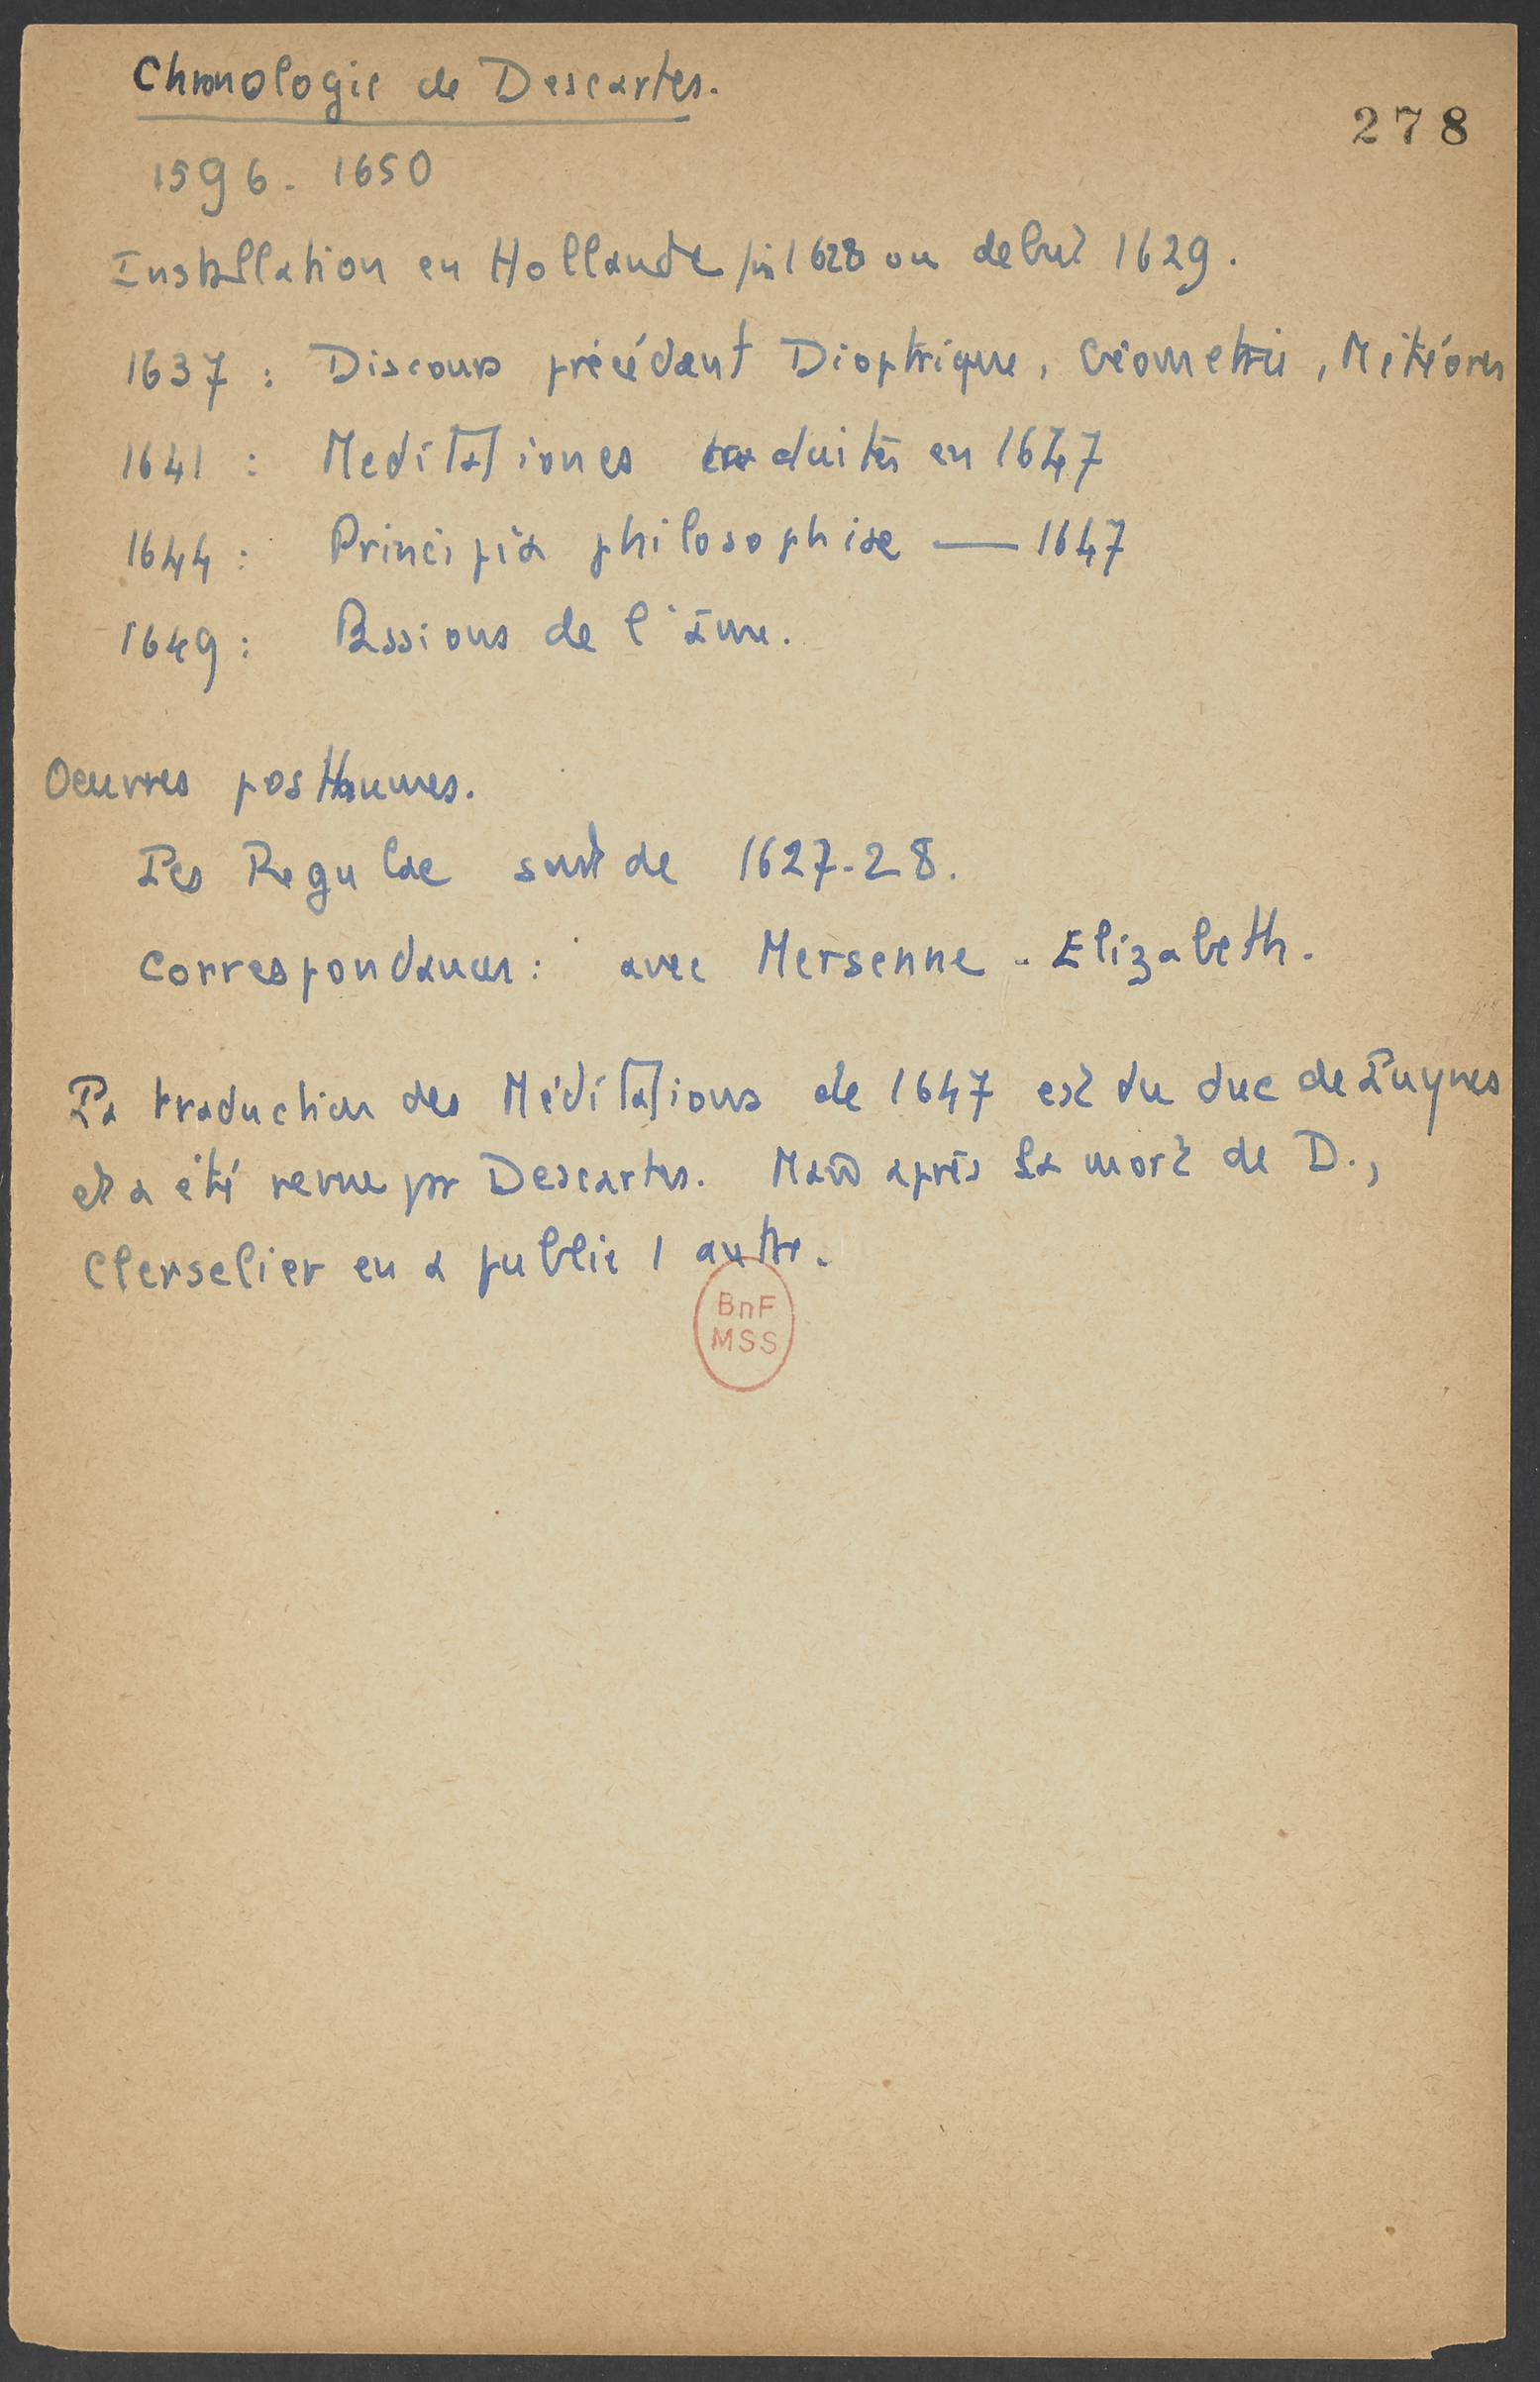 Chronologie de Descartes.
278
1596. 1650
Installation en Hollande fin 1628 ou debut 1629.
1637 : Discours précédant Dioptrique, Géometrie, Météores
1641 : Meditationes traduites en 1647
1644 : Principia philosophiae — 1647
1649 : Passions de l'âme.
Oeuvres posthumes.
Les Regulae sont de 1627-28.
Correspondances : avec Mersenne - Elizabeth.
La traduction des Méditations de 1647 est du duc de Luynes
et a été revue par Descartes. Mais après la mort de D.,
Clerselier en a publié 1 autre.
BnF
MSS